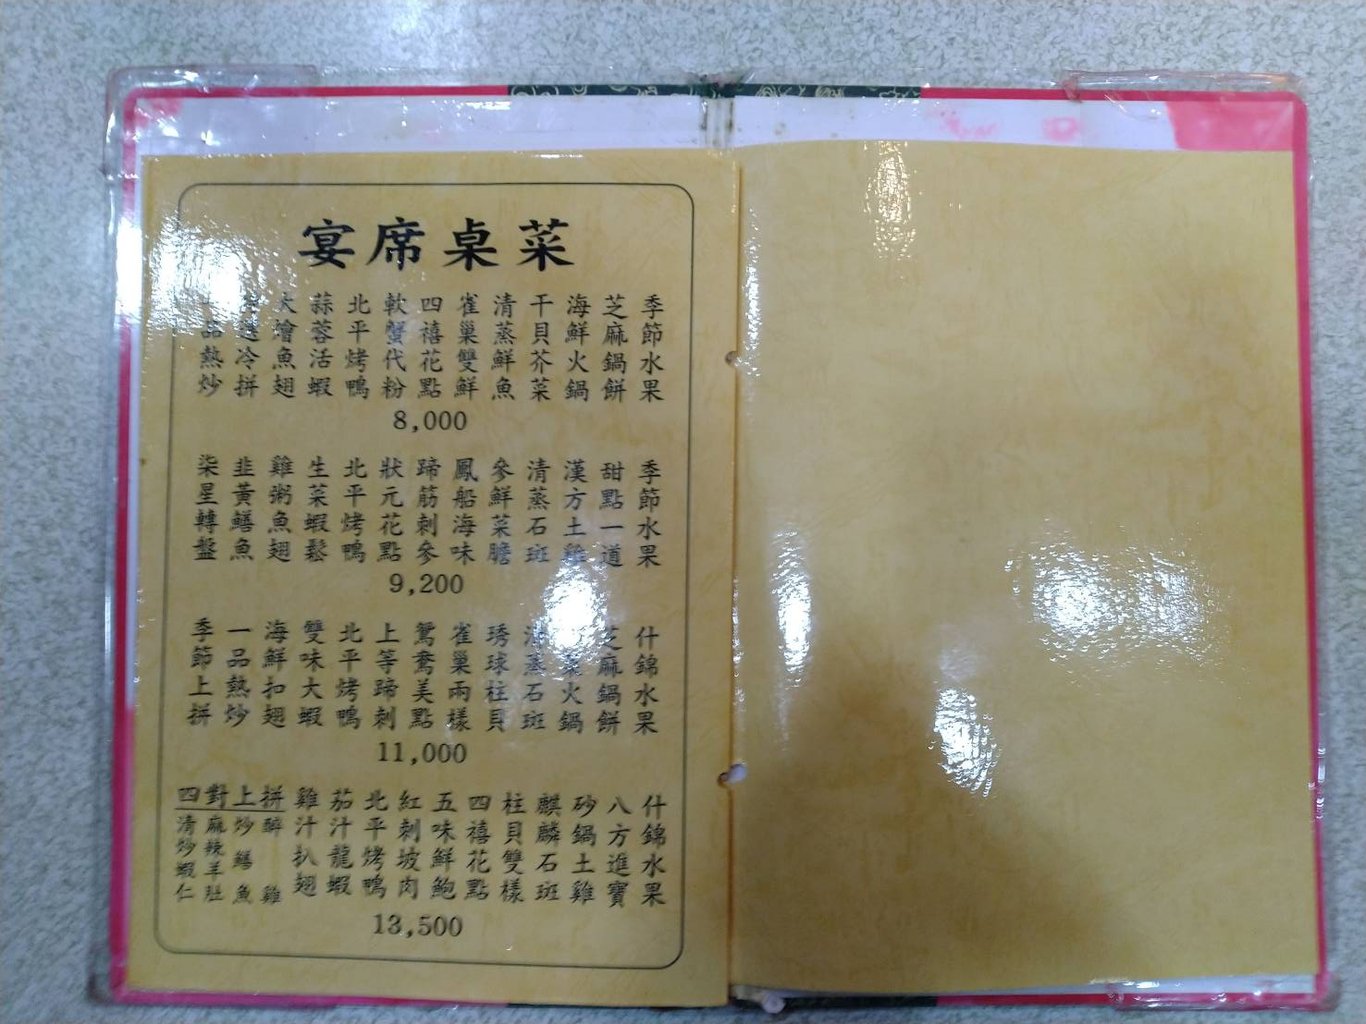 宴席桌菜
品熱炒
冷拼
大燴魚翅
蒜蓉活蝦
北平烤鴨
軟蟹代粉
四禧花點
雀巢雙鮮
清蒸鮮魚
干貝芥菜
海鮮火鍋
芝麻鍋餅
季節水果
8,000
柒星轉盤
韭黃鱔魚
雞粥魚翅
生菜蝦鬆
北平烤鴨
狀元花點
蹄筋刺參
鳳船海味
參鮮菜膽
清蒸石斑
漢方土雞
甜點一道
季節水果
9,200
季節上拼
一品熱炒
海鮮扣翅
雙味大蝦
北平烤鴨
上等蹄刺
鴛鴦美點
雀巢兩樣
琇球柱貝
清蒸石斑
菜火鍋
芝麻鍋餅
什錦水果
11,000
四對上拼
清炒蝦仁
麻辣羊肚
炒鱔魚
醉雞
雞汁扒翅
茄汁龍蝦
北平烤鴨
紅刺坡肉
五味鮮鮑
四禧花點
柱貝雙樣
麒麟石斑
砂鍋土雞
八方進寶
什錦水果
13,500